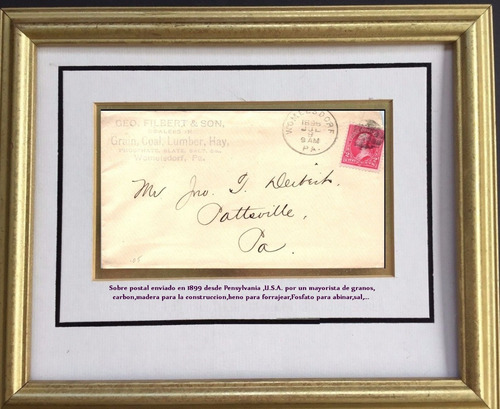 GEO. FILBERT & SON,
DEALERS IN
Grain, Coal, Lumber, Hay,
PHOSPHATE, SLATE, SALT, &c.
Womelsdorf, Pa.
WOMELSDORF
9 AM
PA.
Mr Jno. T. Deibert,
Pottsville,
Pa.
Sobre postal enviado en 1899 desde Pensylvania ,U.S.A. por un mayorista de granos,
carbon,madera para la construccion,heno para forrajear,Fosfato para abinar,sal,...